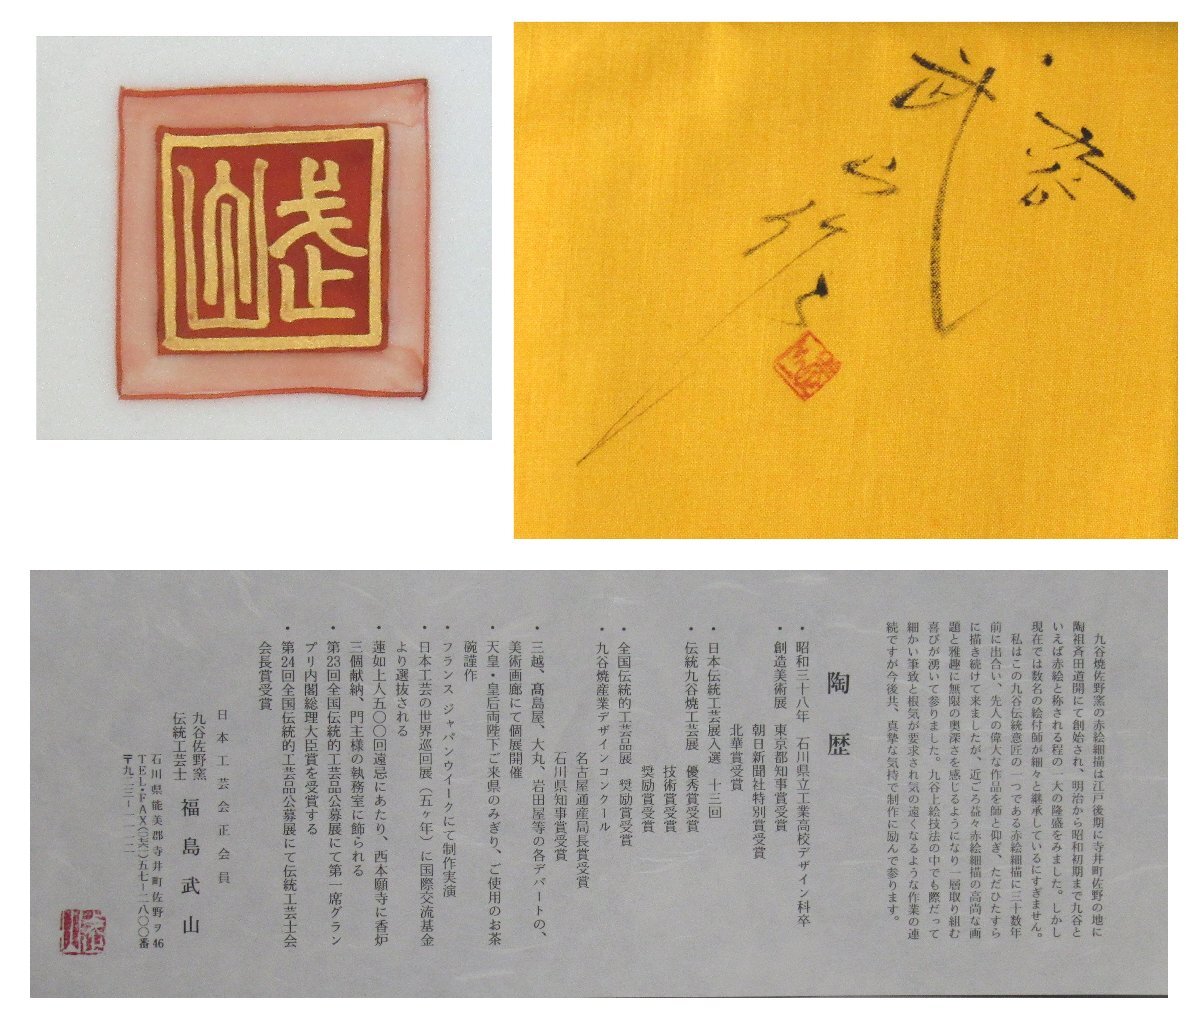 武山
茶
武山
九谷焼佐野窯の赤絵細描は江戸後期に寺井町佐野の地に
陶祖斉田道開にて創始され、明治から昭和初期まで九谷と
いえば赤絵と称される程の一大の隆盛をみました。しかし
現在では数名の絵付師が細々と継承しているにすぎません。
私はこの九谷伝統意匠の一つである赤絵細描に三十数年
前に出合い、先人の偉大な作品を師と仰ぎ、ただひたすら
に描き続けて来ましたが、近ごろ益々赤絵細描の高尚な画
題と雅趣に無限の奥深さを感じるようになり一層取り組む
喜びが湧いて参りました。九谷上絵技法の中でも際だって
細かい筆致と根気が要求され気の遠くなるような作業の連
続ですが今後共、真摯な気持で制作に励んで参ります。
陶歴
・昭和三十八年 石川県立工業高校デザイン科卒
・創造美術展 東京都知事賞受賞
朝日新聞社特別賞受賞
北華賞受賞
・日本伝統工芸展入選 十三回
・伝統九谷焼工芸展 優秀賞受賞
技術賞受賞
奨励賞受賞
・全国伝統的工芸品展 奨励賞受賞
・九谷焼産業デザインコンクール
名古屋通産局長賞受賞
石川県知事賞受賞
・三越、髙島屋、大丸、岩田屋等の各デパートの、
美術画廊にて個展開催
・天皇・皇后両陛下ご来県のみぎり、ご使用のお茶
碗謹作
・フランス ジャパンウイークにて制作実演
・日本工芸の世界巡回展（五ヶ年）に国際交流基金
より選抜される
・蓮如上人五〇〇回遠忌にあたり、西本願寺に香炉
三個献納、門主様の執務室に飾られる
・第23回全国伝統的工芸品公募展にて第一席グラン
プリ内閣総理大臣賞を受賞する
・第24回全国伝統的工芸品公募展にて伝統工芸士会
会長賞受賞
日本工芸会正会員
九谷佐野窯
伝統工芸士 福島武山
石川県能美郡寺井町佐野ヲ46
TEL・FAX(〇七六一)五七-二八〇〇番
〒九二三-一一一二